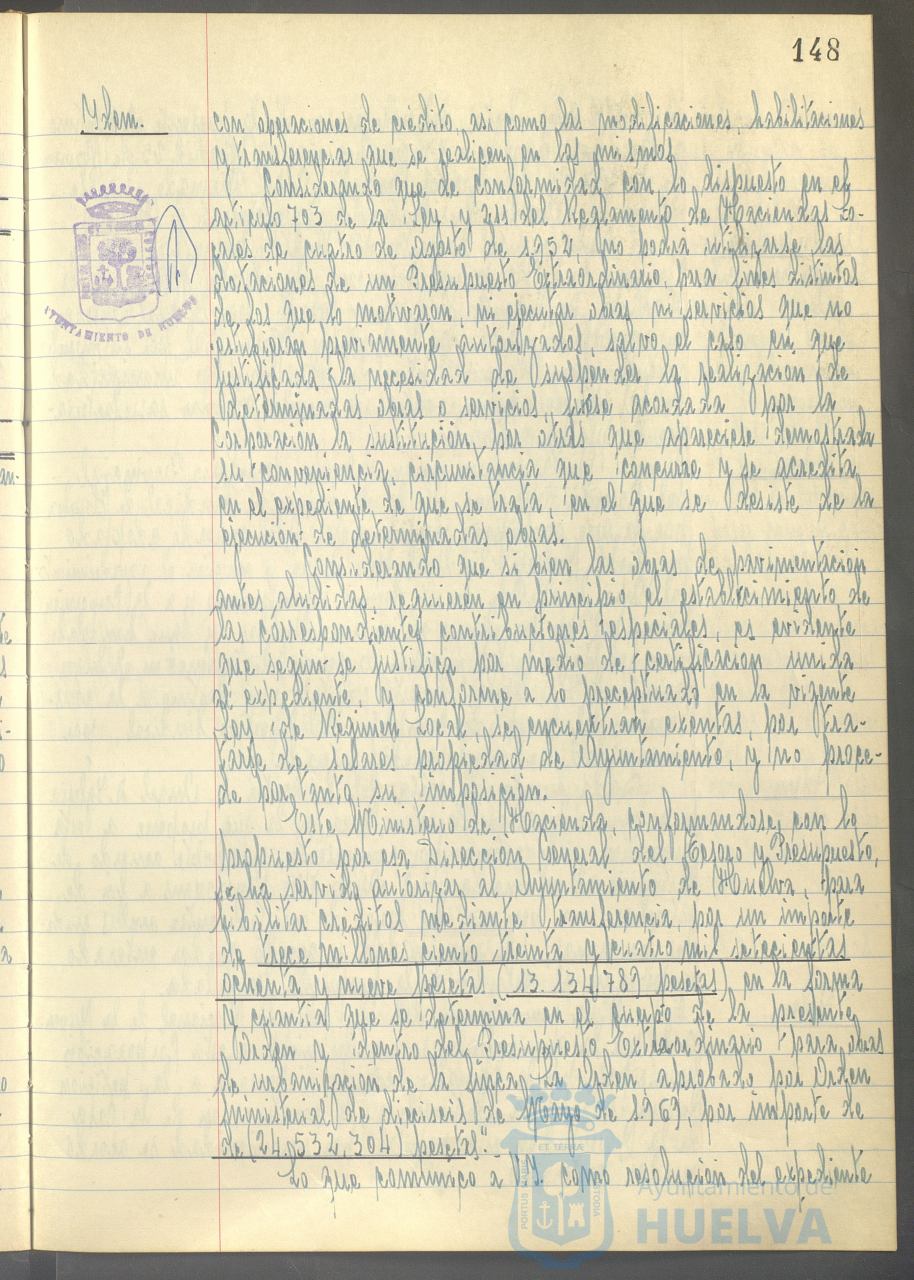 148
Idem.
con operaciones de crédito, asi como las modificaciones, habilitaciones
y transferencias que se realicen en los mismos
Considerando que de conformidad con lo dispuesto en el
artículo 703 de la Ley y 255 del Reglamento de Haciendas Lo-
cales de cuatro de Agosto de 1952, no podrá utilizarse las
dotaciones de un Presupuesto Extraordinario, para fines distintos
de los que lo motivaron, ni ejecutar obras ni servicios que no
estubieran previamente autorizados, salvo el caso en que
justificada la necesidad de suspender la realización de
determinadas obras o servicios, fuese acordada por la
Corporación la sustitución por otras que apareciese demostrada
su conveniencia, circunstancia que concurre y se acredita
en el expediente de que se trata, en el que se desiste de la
ejecución de determinadas obras.
Considerando que si bien las obras de pavimentación
antes aludidas, requieren en principio el establecimiento de
las correspondientes contribuciones especiales, es evidente
que según se justifica por medio de certificación unida
al expediente, y conforme a lo preceptuado en la vigente
Ley de Régimen Local, se encuentran exentas, por tra-
tarse de solares propiedad de Ayuntamiento, y no proce-
de por tanto su imposición.
Este Ministerio de Hacienda, conformandose con lo
propuesto por esa Dirección General del Tesoro y Presupuesto,
se ha servido autorizar al Ayuntamiento de Huelva, para
habilitar créditos mediante transferencia, por un importe
de trece millones ciento treinta y cuatro mil setecientas
ochenta y nueve pesetas (13.134.789 pesetas) en la forma
y cuantia que se determina en el cuerpo de la presente
Orden y dentro del Presupuesto Extraordinario para obras
de urbanización de la finca La Orden aprobado por Orden
ministerial de dieciseis de Mayo de 1969, por importe de
de (24.532.304) pesetas".-
Lo que comunico a V.I. como resolución del expediente
AYUNTAMIENTO DE HUELVA
PORTUS MARIS ET TERRAE CUSTODIA
Ayuntamiento de
HUELVA